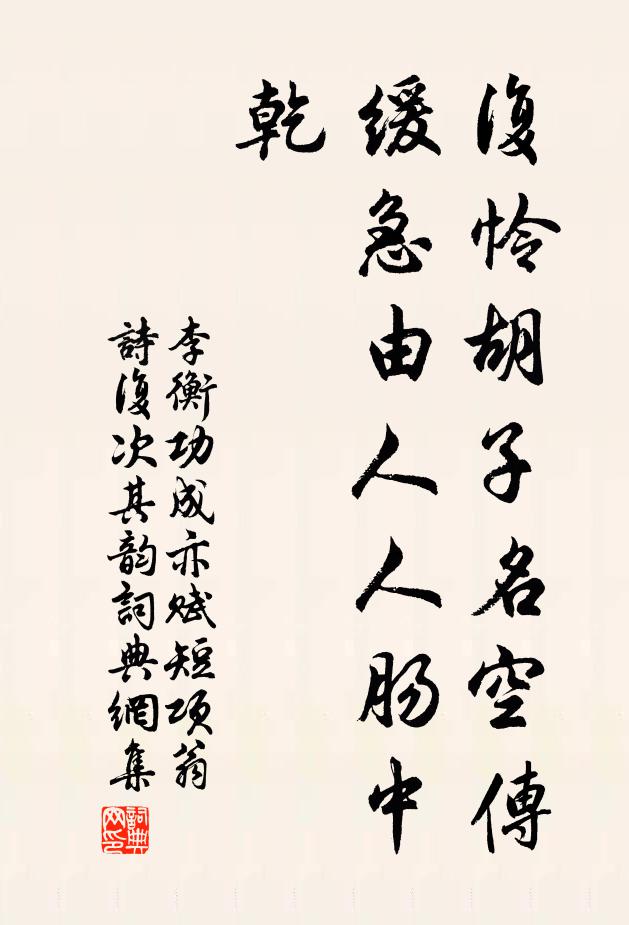 復怜胡子名空傳
緩急由人人肠中
乾
李衡功成亦赋短项翁
詩復次其韵詞典網集
詞典網印